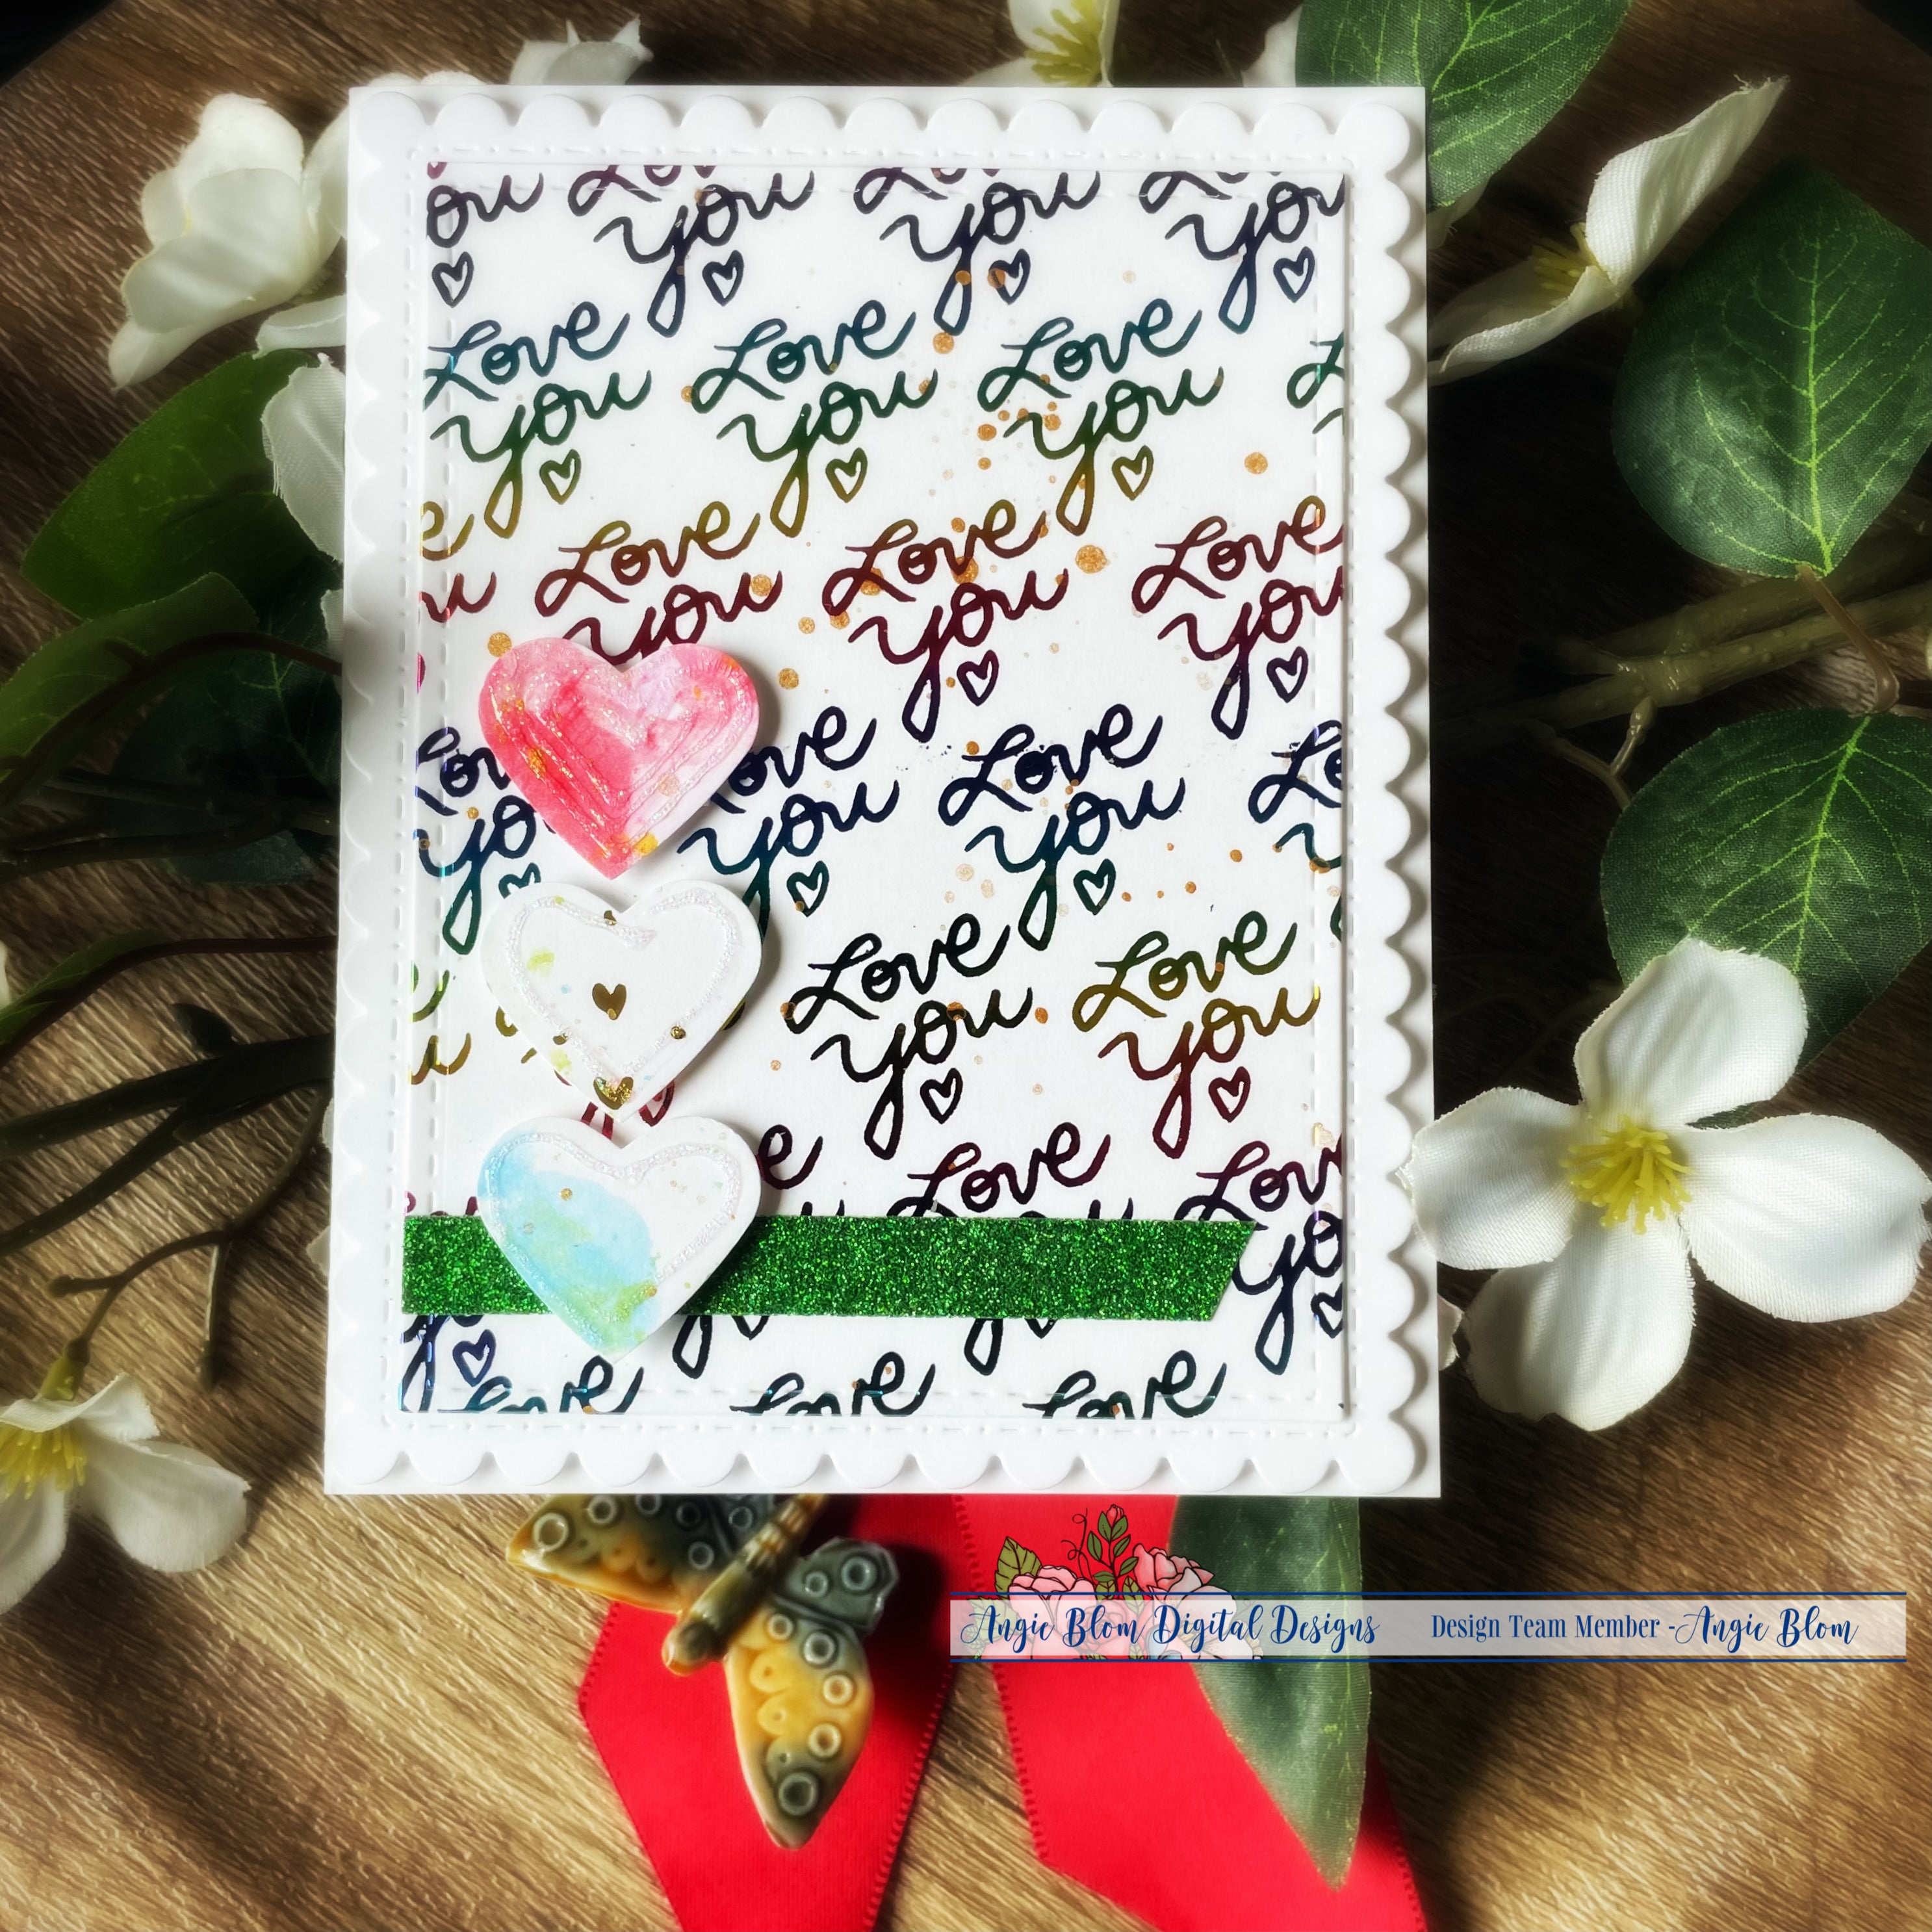 ou You You You
Love Love Love
You You You
e Love Love Love
u You You You
Lov ove Love Lo
Yo You You
Love Love
You You
e Love Lov
Yo
Love Love Love
Angie Blom Digital Designs Design Team Member -Angie Blom